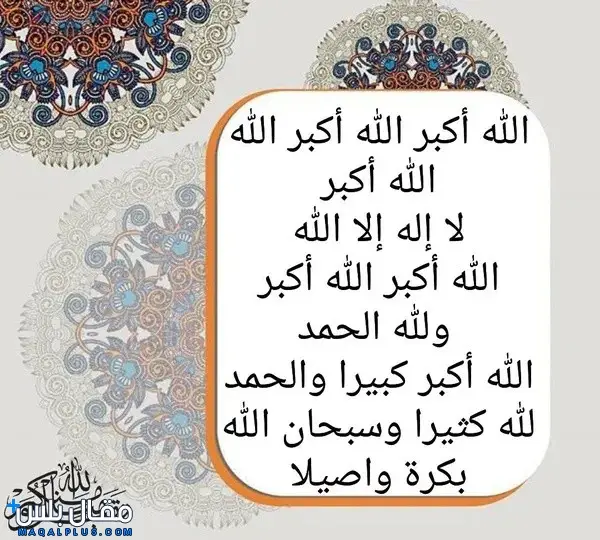 الله أكبر الله أكبر الله
الله أكبر
لا إله إلا الله
الله أكبر الله أكبر
ولله الحمد
الله أكبر كبيرا والحمد
لله كثيرا وسبحان الله
بكرة واصيلا
مقال بلس+
MAQALPLUS.COM